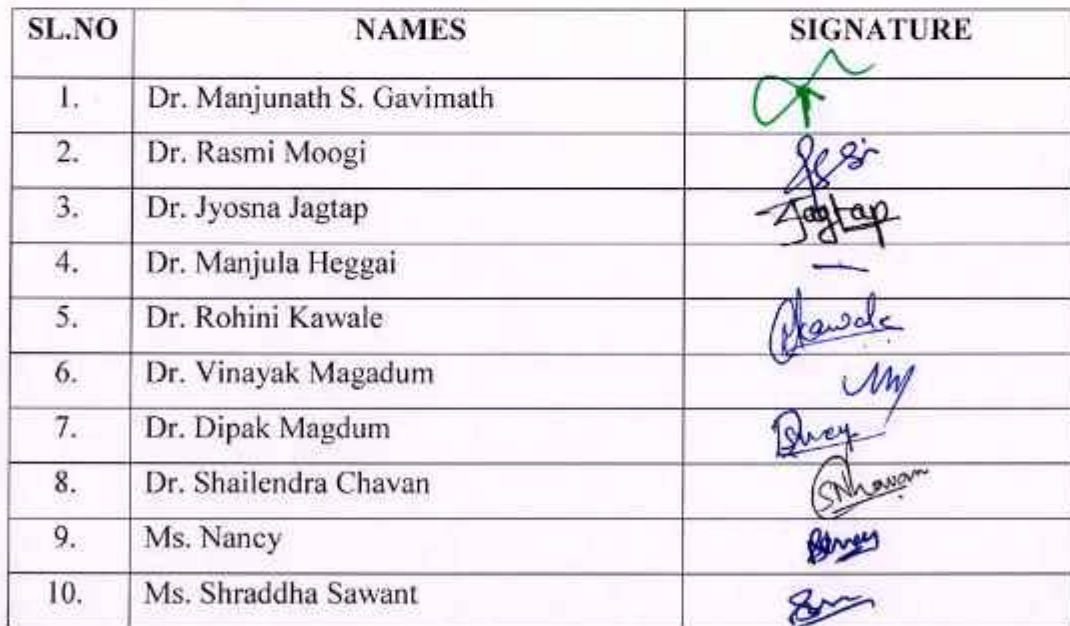 SL.NO NAMES SIGNATURE
1. Dr. Manjunath S. Gavimath
2. Dr. Rasmi Moogi
3. Dr. Jyosna Jagtap Jagtap
4. Dr. Manjula Heggai —
5. Dr. Rohini Kawale Rkawale
6. Dr. Vinayak Magadum
7. Dr. Dipak Magdum
8. Dr. Shailendra Chavan
9. Ms. Nancy
10. Ms. Shraddha Sawant